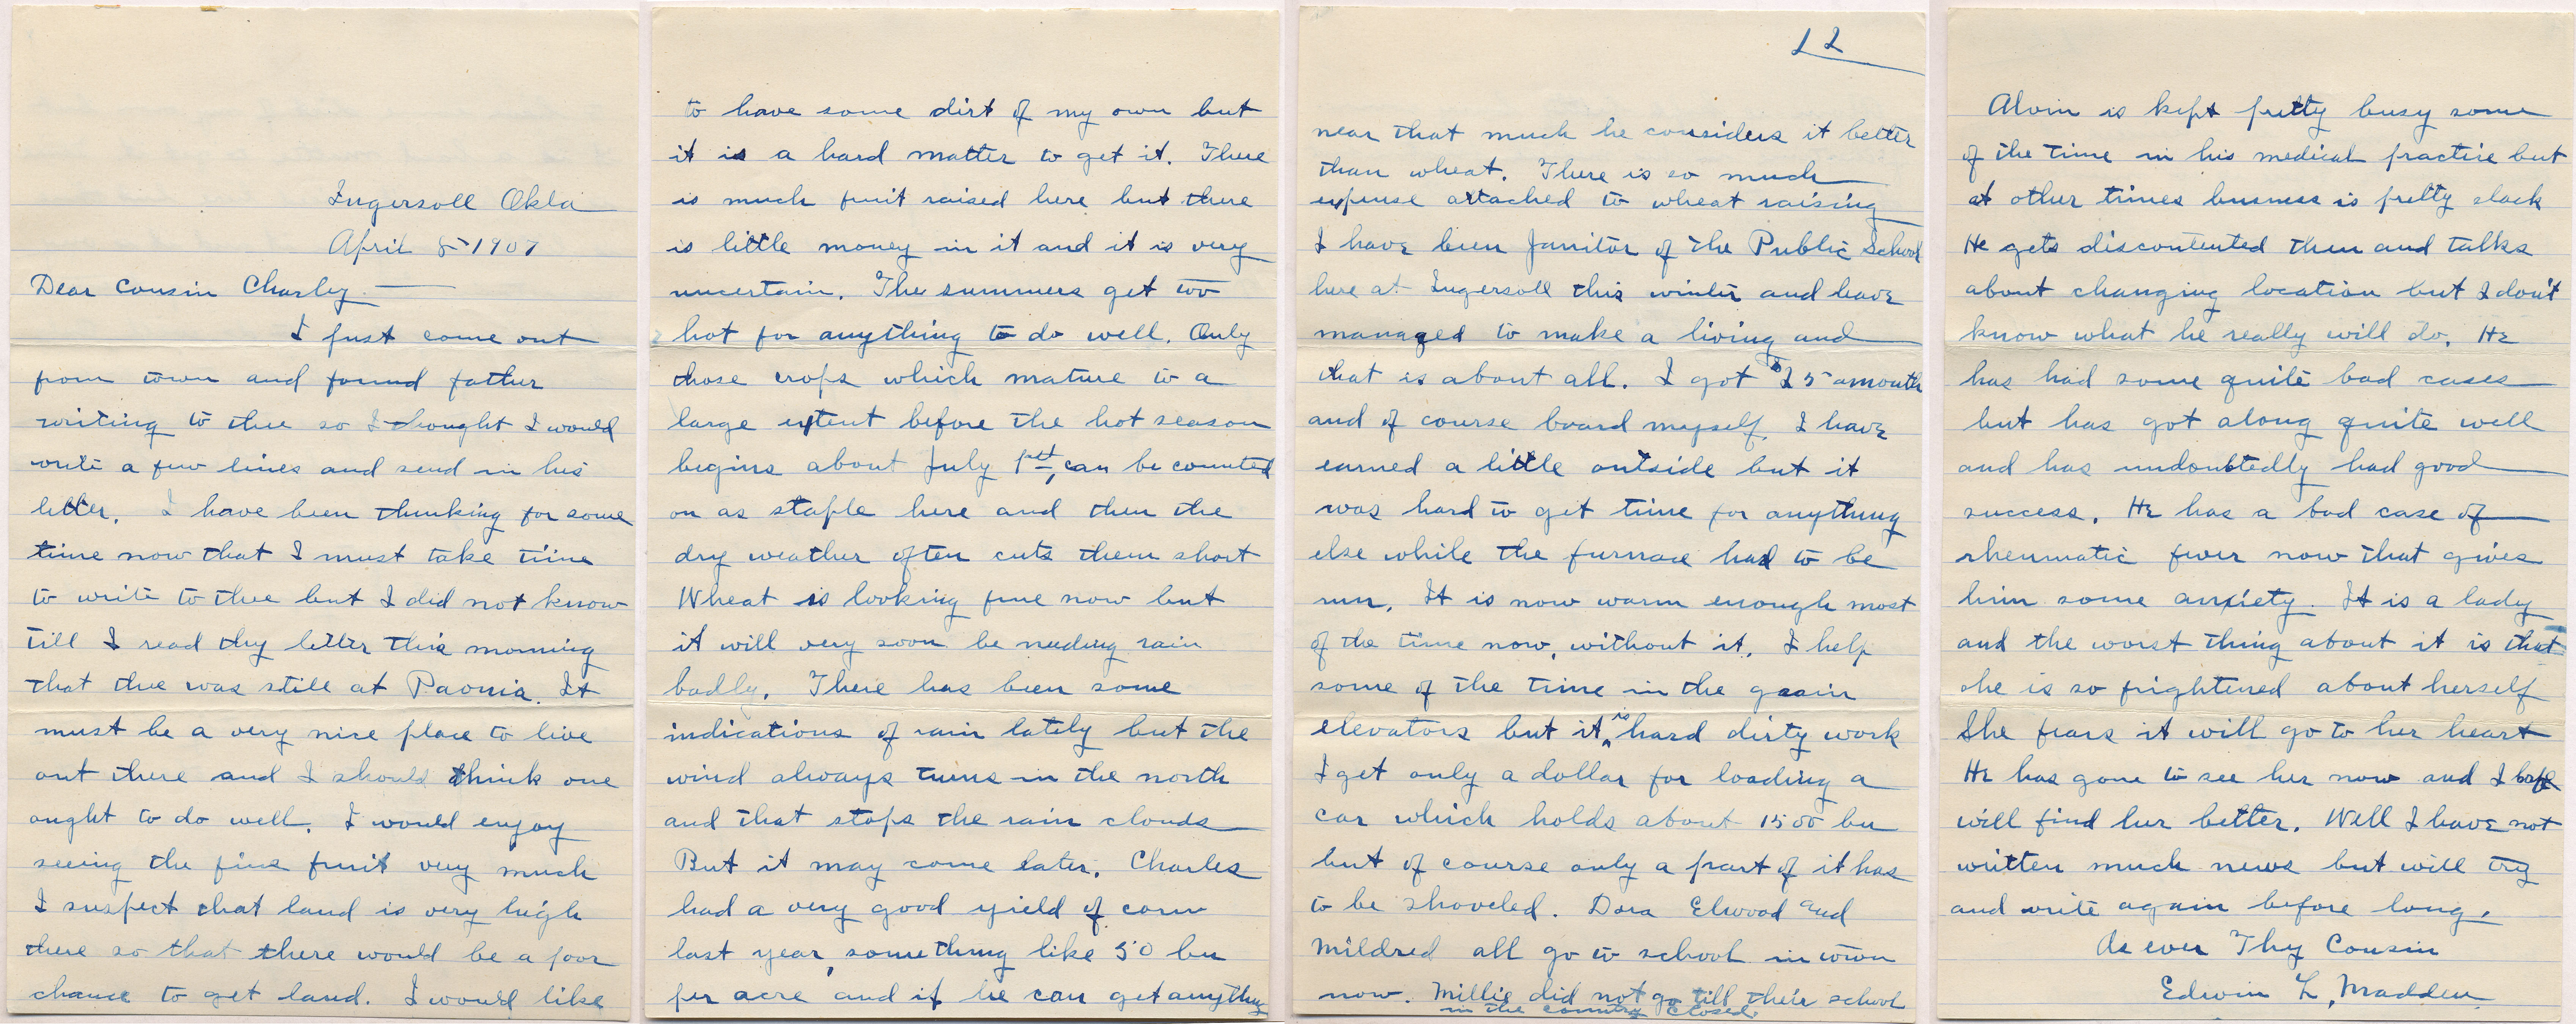 Ingersoll Okla
April 8-1907
Dear Cousin Charley —
I just come out
from town and found father
writing to thee so I thought I would
write a few lines and send in his
letter. I have been thinking for some
time now that I must take time
to write to thee but I did not know
till I read thy letter this morning
that thee was still at Paonia. It
must be a very nice place to live
out there and I should think one
ought to do well. I would enjoy
seeing the fine fruit very much
I suspect that land is very high
there so that there would be a poor
chance to get land. I would like
to have some dirt of my own but
it is a hard matter to get it. There
is much fruit raised here but there
is little money in it and it is very
uncertain. The summers get too
hot for anything to do well. Only
those crops which mature to a
large extent before the hot season
begins about July 1st, can be counted
on as staple here and then the
dry weather often cuts them short
Wheat is looking fine now but
it will very soon be needing rain
badly. There has been some
indications of rain lately but the
wind always turns in the north
and that stops the rain clouds
But it may come later. Charles
had a very good yield of corn
last year, something like 50 bu
per acre and if he can get anything
2
near that much he considers it better
than wheat. There is so much
expense attached to wheat raising
I have been Janitor of the Public School
here at Ingersoll this winter and have
managed to make a living and
that is about all. I got $25 a month
and of course board myself. I have
earned a little outside but it
was hard to get time for anything
else while the furnace had to be
run. It is now warm enough most
of the time now, without it. I help
some of the time in the grain
elevators but it is hard dirty work
I get only a dollar for loading a
car which holds about 1500 bu
but of course only a part of it has
to be shoveled. Dora Elwood and
Mildred all go to school in town
now. Millie did not go till their school
in the country closed.
Alvin is kept pretty busy some
of the time in his medical practice but
at other times business is pretty slack
He gets discontented then and talks
about changing location but I don't
know what he really will do. He
has had some quite bad cases
but has got along quite well
and has undoubtedly had good
success. He has a bad case of
rheumatic fever now that gives
him some anxiety. It is a lady
and the worst thing about it is that
she is so frightened about herself
She fears it will go to her heart
He has gone to see her now and I hope
will find her better. Well I have not
written much news but will try
and write again before long.
As ever Thy Cousin
Edwin L. Madden.